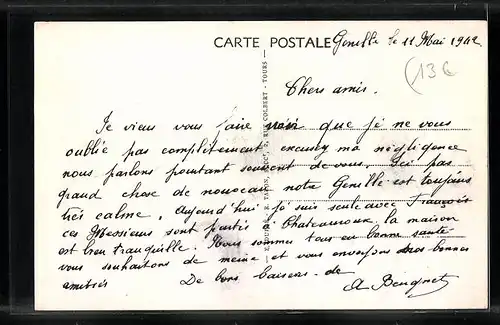 CARTE POSTALE
Genillé le 11 Mai 1942
(136
Chers amis.
Je viens vous faire voir que je ne vous
oublie pas complètement excusez ma négligence
nous parlons pourtant souvent de vous. Ici pas
grand chose de nouveau notre Genillé est toujours
très calme, Aujourd'hui je suis seule avec François
ces Messieurs sont partis à Chateauroux la maison
est bien tranquille. Nous sommes tous en bonne santé
vous souhaitons de meme et vous envoyons nos bonnes
amitiés
De bons baisers de
A Beugnet
RUE COLBERT - TOURS